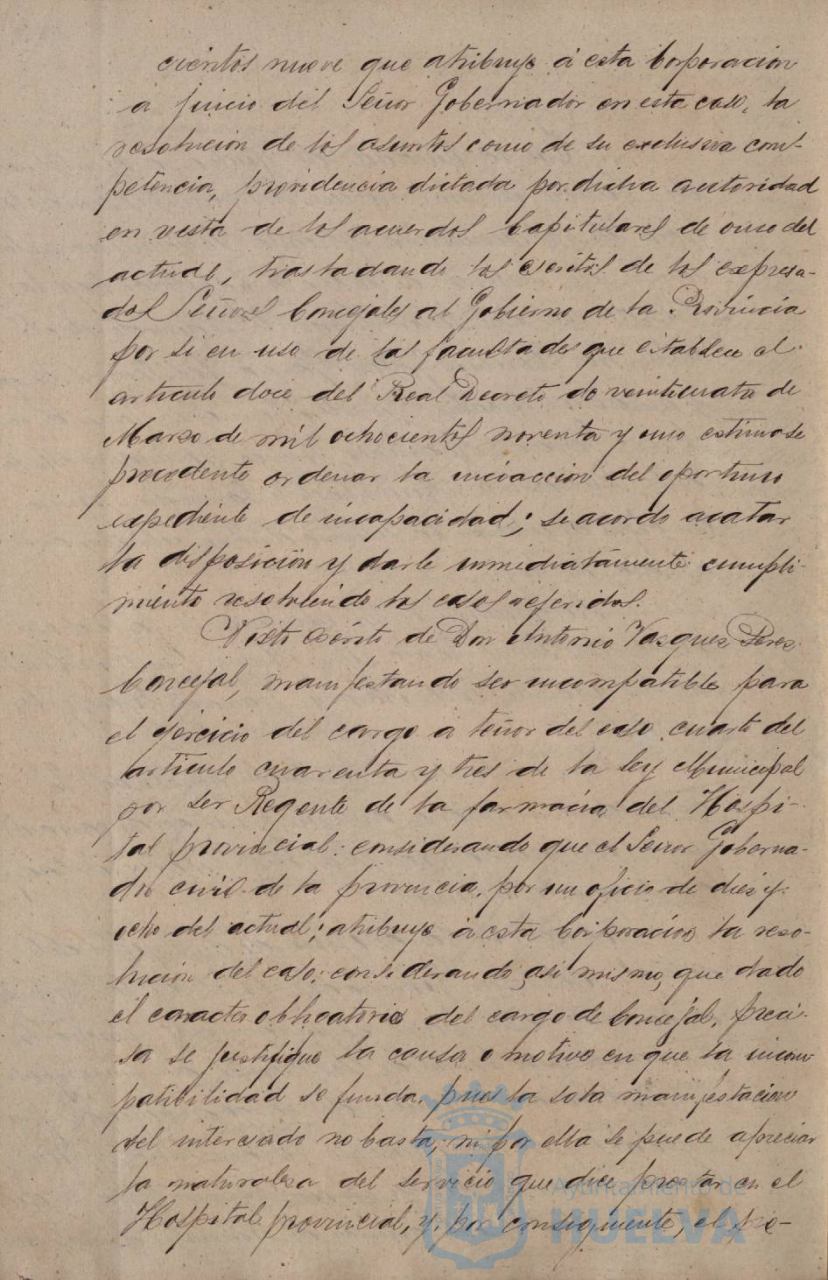 cientos nueve que atribuye á esta Corporación
a juicio del Señor Gobernador en este caso, la
resolucion de los asuntos como de su exclusiva com-
petencia, providencia dictada por dicha autoridad
en vista de los acuerdos Capitulares de once del
actual, trasladando los escritos de los expresa-
dos Señores Concejales al Gobierno de la Provincia
por si en uso de las facultades que establece el
articulo doce del Real Decreto de veinticuatro de
Marzo de mil ochocientos noventa y uno estimase
procedente ordenar la incoaccion del oportuno
expediente de incapacidad; se acordó acatar
la disposición y darle inmediatamente cumpli-
miento resolviendo los casos referidos.
Visto escrito de Don Antonio Vazquez Perez
Concejal, manifestando ser incompatible para
el ejercicio del cargo a tenor del caso cuarto del
articulo cuarenta y tres de la ley Municipal
por ser Regente de la farmacia del Hospi-
tal provincial: considerando que el Señor Goberna-
dor civil de la provincia, por un oficio de diez y
ocho del actual, atribuye á esta Corporación la reso-
lucion del caso: considerando, asi mismo, que dado
el caracter obligatorio del cargo de Concejal, preci-
sa se justifique la causa o motivo en que la incom
patibilidad se funda, pues la sola manifestacion
del interesado no basta, ni por ella se puede apreciar
la naturaleza del servicio que dice prestar en el
Hospital provincial, y, por consiguiente, el
Ayuntamiento de
HUELVA